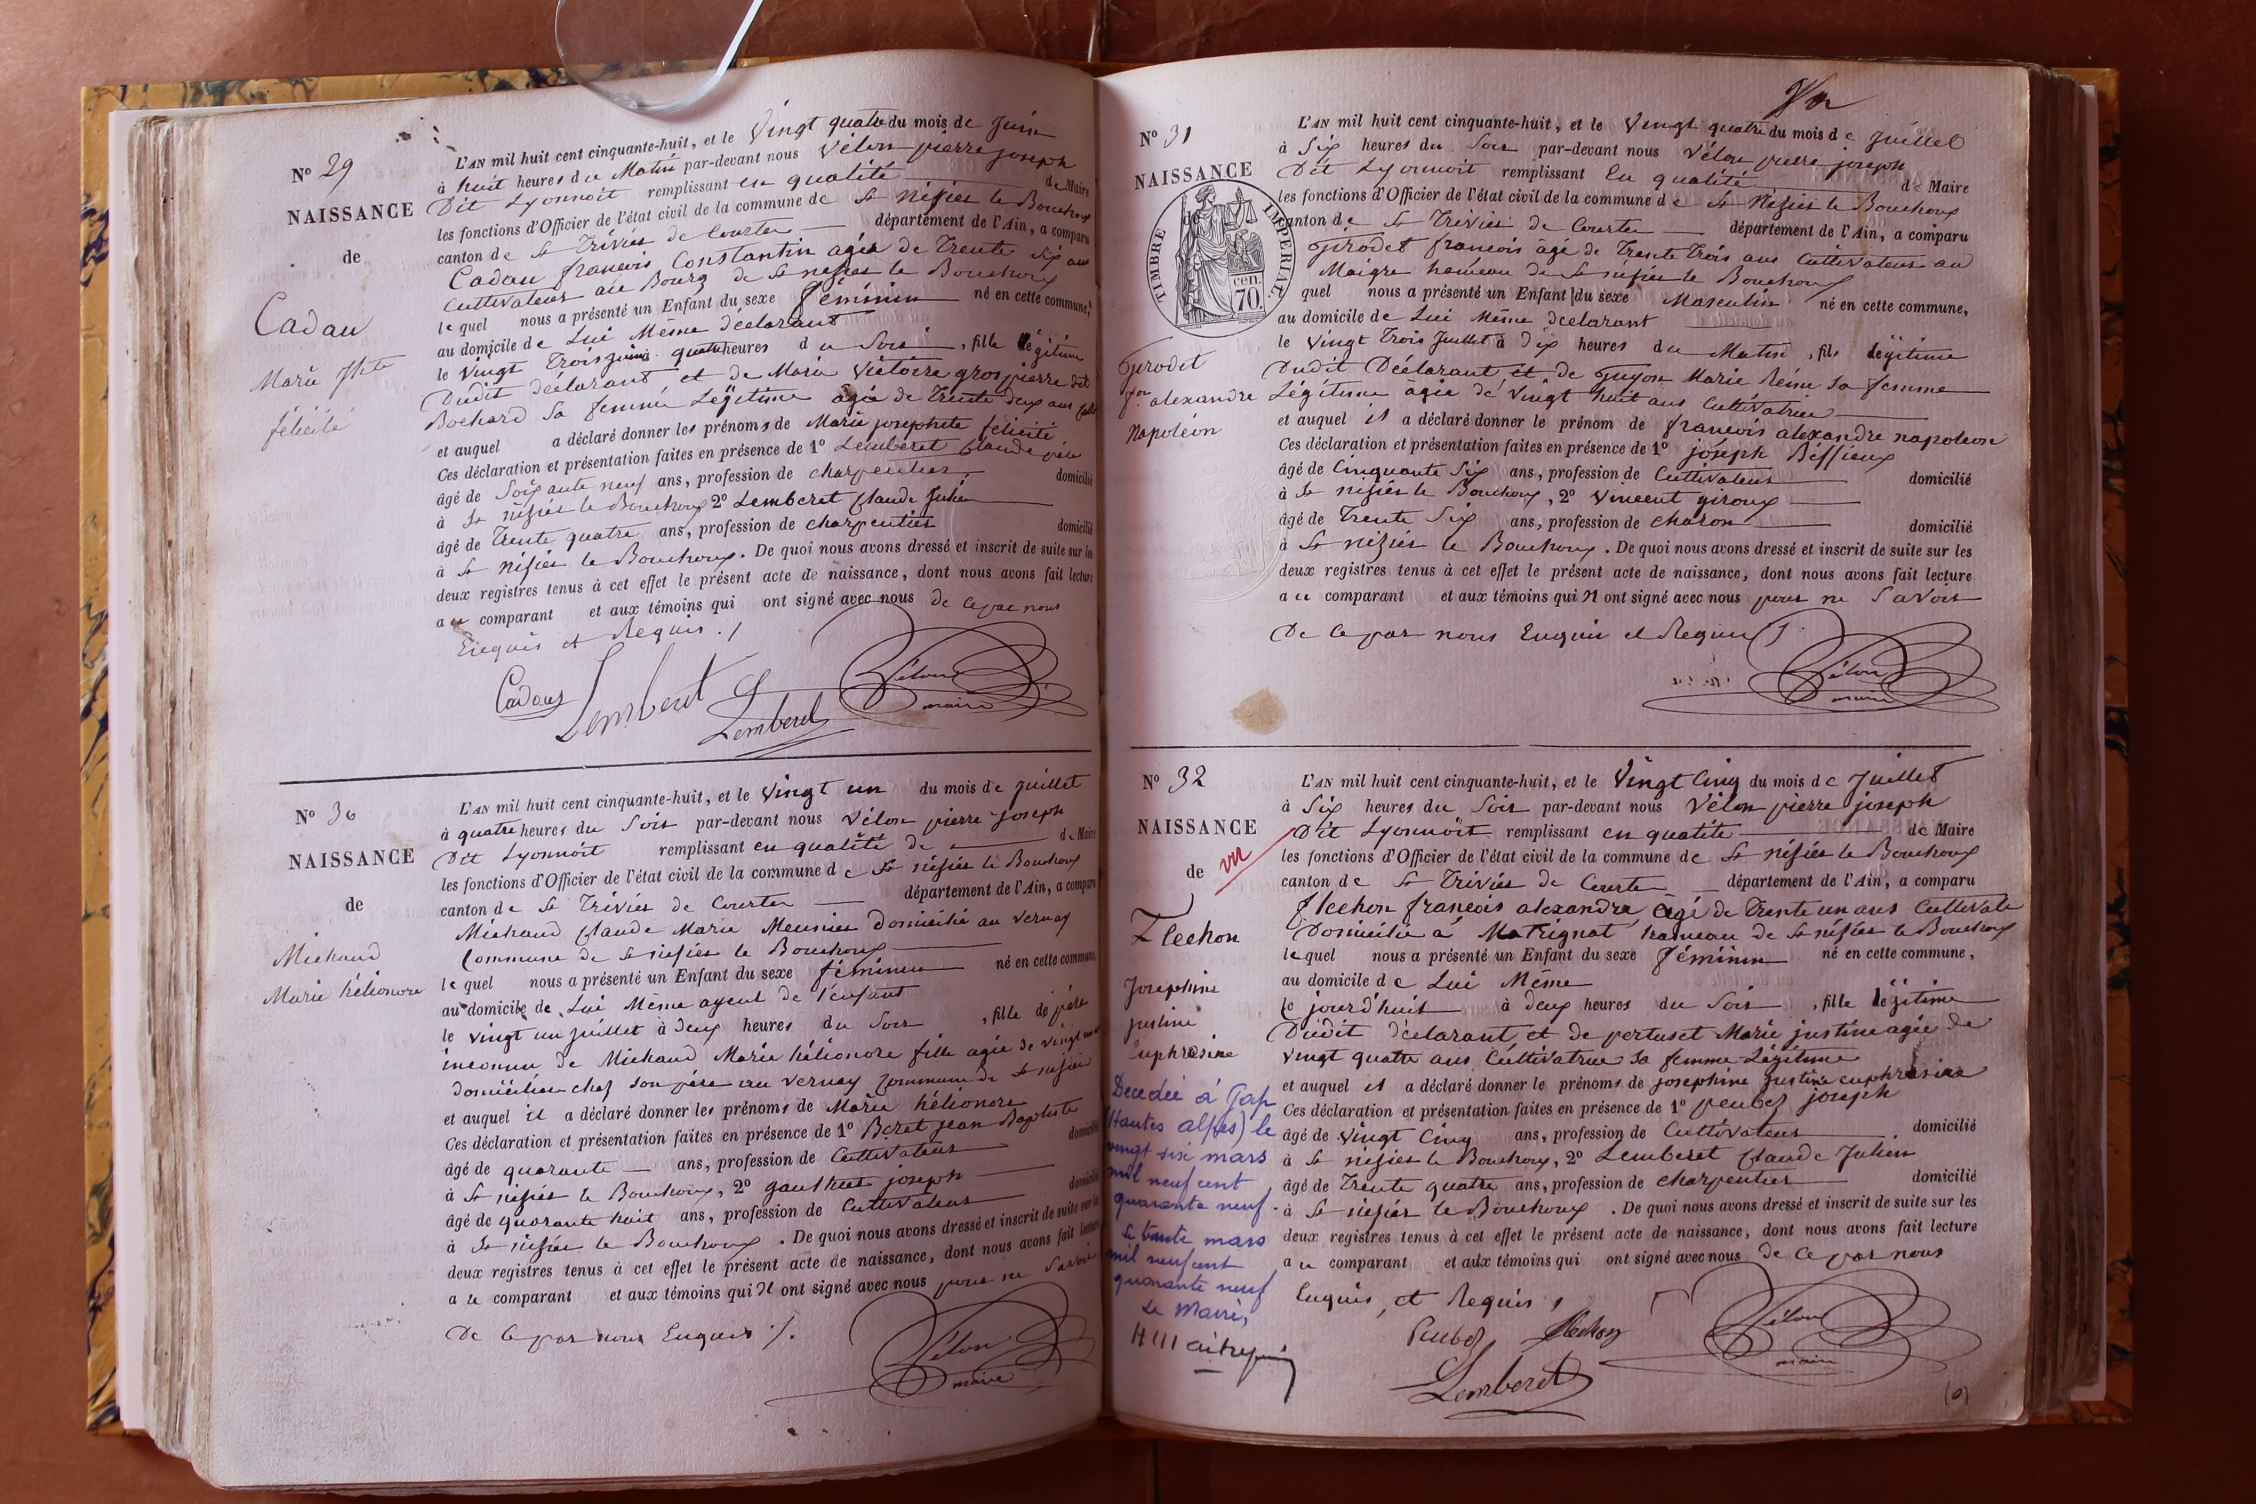 N° 29
NAISSANCE
de
Cadau
Marie Jhte
félicité
L'AN mil huit cent cinquante-huit, et le Vingt quatre du mois de Juin
à huit heures du Matin par-devant nous Vélon pierre joseph
Dit Lyonnoit remplissant en qualité de Maire
les fonctions d'Officier de l'état civil de la commune de St Nisier le Bouchoux
canton de St Trivier de Courtes département de l'Ain, a comparu
Cadau francois Constantin agée de Trente Six ans
Cultivateur au Bourg de St nisier le Bouchoux
le quel nous a présenté un Enfant du sexe féminin né en cette commune,
au domicile de Lui Même déclarant
le Vingt Trois juin à quatre heures du Soir , fille légitime
Dudit déclarant et de Maria Victoire grospierre dit
Bochard Sa femme Légitime agée de Trente deux ans
et auquel a déclaré donner les prénoms de Marie josephete félicité
Ces déclaration et présentation faites en présence de 1° Lemberet Claude père
âgé de Soixante neuf ans, profession de charpentier domicilié
à St nisier le Bouchoux 2° Lemberet Claude Julien
âgé de Trente quatre ans, profession de charpentier domicilié
à St nisier le Bouchoux. De quoi nous avons dressé et inscrit de suite sur les
deux registres tenus à cet effet le présent acte de naissance, dont nous avons fait lecture
au comparant et aux témoins qui ont signé avec nous de ce par nous
Enquis et Requis ./
Cadau Lemberet Lemberet Vélon
maire
N° 30
NAISSANCE
de
Michaud
Marie hélionore
L'AN mil huit cent cinquante-huit, et le Vingt un du mois de juillet
à quatre heures du Soir par-devant nous Vélon pierre joseph
Dit Lyonnoit remplissant en qualité de de Maire
les fonctions d'Officier de l'état civil de la commune de St nisier le Bouchoux
canton de St Trivier de Courtes département de l'Ain, a comparu
Michaud Claude Marie Meunier Domicilié au Vernay
Commune de St nisier le Bouchoux
le quel nous a présenté un Enfant du sexe féminin né en cette commune,
au domicile de Lui Même ayeul de l'enfant
le vingt un juillet à deux heures du Soir , fille de père
inconnu de Michaud Marie hélionore fille agée de vingt
domiciliée chez son père au vernay commune de St nisier
et auquel il a déclaré donner les prénoms de Marie hélionore
Ces déclaration et présentation faites en présence de 1° Beret jean Baptiste
âgé de quarante ans, profession de Cultivateur domicilié
à St nisier le Bouchoux, 2° gauthier joseph
âgé de quarante huit ans, profession de Cultivateur domicilié
à St nisier le Bouchoux . De quoi nous avons dressé et inscrit de suite sur les
deux registres tenus à cet effet le présent acte de naissance, dont nous avons fait lecture
au comparant et aux témoins qui N ont signé avec nous pour ne Savoir
De ce par nous Enquis ./.
Vélon
maire
N° 31
NAISSANCE
de
TIMBRE IMPERIAL
70 cen.
Girodet
fois alexandre
Napoléon
L'AN mil huit cent cinquante-huit, et le Vingt quatre du mois de Juillet
à Six heures du Soir par-devant nous Vélon pierre joseph
Dit Lyonnoit remplissant En qualité de Maire
les fonctions d'Officier de l'état civil de la commune de St Nisier le Bouchoux
canton de St Trivier de Courtes département de l'Ain, a comparu
Girodet francois âgé de Trente Trois ans Cultivateur au
Maigre hameau de St nisier le Bouchoux
quel nous a présenté un Enfant du sexe Masculin né en cette commune,
au domicile de Lui Même declarant
le Vingt Trois Juillet à dix heures du Matin , fils légitime
Dudit Déclarant et de Guyon Marie Reine Sa femme
Légitime âgée de Vingt huit ans Cultivatrice
et auquel il a déclaré donner le prénom de francois alexandre napoleon
Ces déclaration et présentation faites en présence de 1° joseph Béffieux
âgé de Cinquante Six ans, profession de Cultivateur domicilié
à St nisier le Bouchoux, 2° Vincent giroux
âgé de Trente Six ans, profession de charon domicilié
à St nisier le Bouchoux . De quoi nous avons dressé et inscrit de suite sur les
deux registres tenus à cet effet le présent acte de naissance, dont nous avons fait lecture
au comparant et aux témoins qui N ont signé avec nous pour ne Savoir
De ce par nous Enquis et Requis ./.
Vélon
maire
N° 32
NAISSANCE
de
vu
Flechon
Josephine
justine
Euphrasine
Decedée à Gap
(Hautes alpes) le
vingt six mars
mil neuf cent
quarante neuf.
le trente mars
mil neuf cent
quarante neuf
Le Maire,
L'AN mil huit cent cinquante-huit, et le Vingt Cinq du mois de Juillet
à Six heures du Soir par-devant nous Vélon pierre joseph
Dit Lyonnoit remplissant en qualité de Maire
les fonctions d'Officier de l'état civil de la commune de St nisier le Bouchoux
canton de St Trivier de Courtes département de l'Ain, a comparu
flechon francois alexandre agé de Trente un ans Cultivate
Domicilié à Matrignat hameau de St nisier le Bouchoux
le quel nous a présenté un Enfant du sexe féminin né en cette commune,
au domicile de Lui Même
le jourd'huit à deux heures du Soir , fille légitime
Dudit déclarant et de pertuset Marie justine agée de
vingt quatre ans Cultivatrice Sa femme Légitime
et auquel il a déclaré donner le prénoms de josephine justine euphrasine
Ces déclaration et présentation faites en présence de 1° peubez joseph
âgé de vingt Cinq ans, profession de Cultivateur domicilié
à St nisier le Bouchoux, 2° Lemberet Claude Julien
âgé de Trente quatre ans, profession de charpentier domicilié
à St nisier le Bouchoux . De quoi nous avons dressé et inscrit de suite sur les
deux registres tenus à cet effet le présent acte de naissance, dont nous avons fait lecture
au comparant et aux témoins qui ont signé avec nous de ce par nous
Enquis et Requis
Peubez flechon Vélon
Lemberet maire